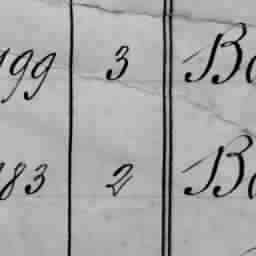 199 3 Bo
183 2 Bo